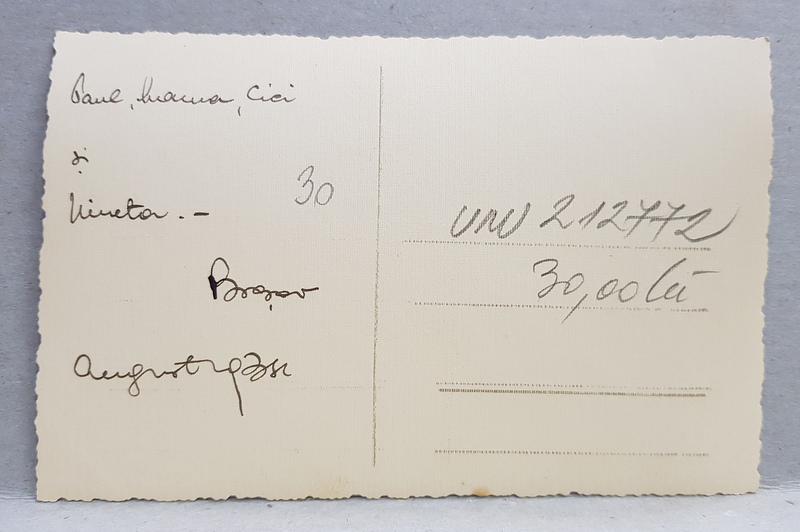 Paul, Mama, Cici
și
Nineta. –
30
Brașov
August 1931
UNU 212772
30,00 lei